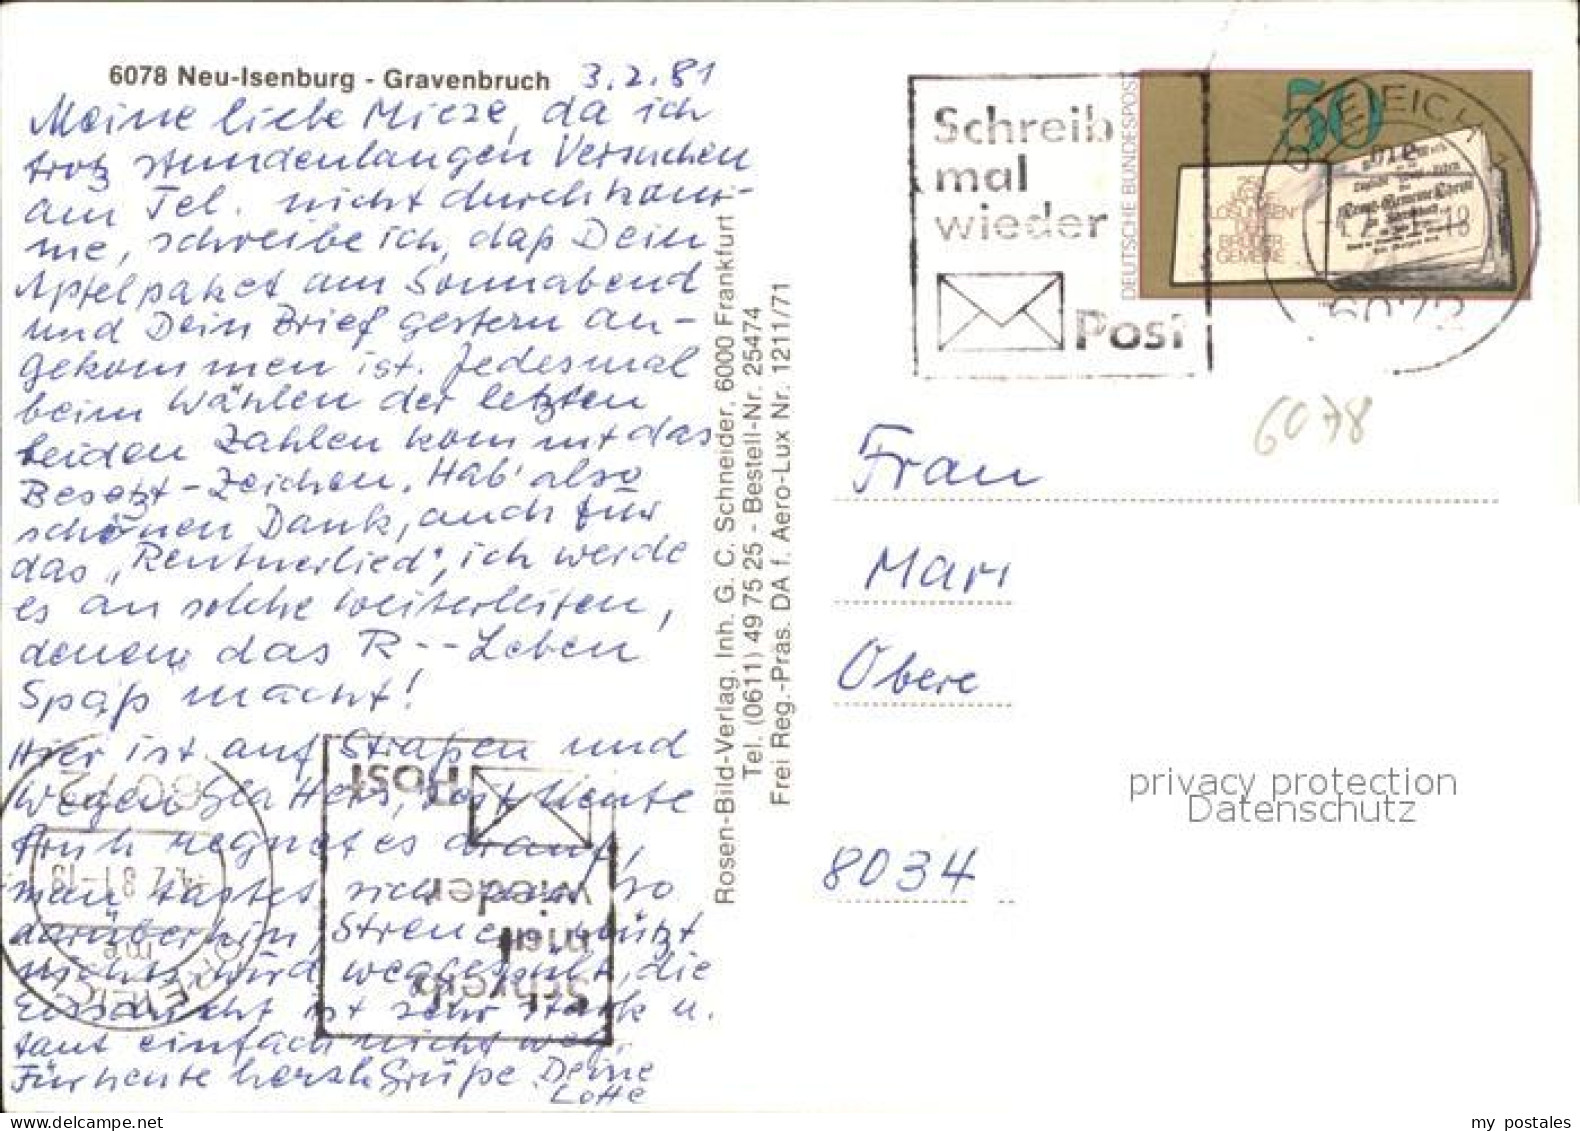 6078 Neu-Isenburg - Gravenbruch 3.2.81
Meine liebe Mieze, da ich
trotz stundenlangen Versuchen
am Tel. nicht durchkom-
me, schreibe ich, daß Dein
Apfelpaket am Sonnabend
und Dein Brief gestern an-
gekommen ist. Jedesmal
beim Wählen der letzten
beiden Zahlen kommt das
Besetzt-Zeichen. Hab' also
schönen Dank, auch für
das „Rentnerlied", ich werde
es an solche weiterleiten,
denen das R--Leben
Spaß macht!
Hier ist auf Straßen und
Wegen Glatteis, heute
früh regnet es drauf,
man tastet sich so
darüberhin, Streuen nützt
nichts, wird weggespült, die
Eisschicht ist sehr stark u.
taut einfach nicht weg.
Für heute herzl. Grüße Deine
Lotte
Rosen-Bild-Verlag, Inh. G. C. Schneider, 6000 Frankfurt 1
Tel. (0611) 49 75 25 - Bestell-Nr. 25474
Frei Reg.-Präs. DA f. Aero-Lux Nr. 1211/71
Schreib
mal
wieder
Post
DEUTSCHE BUNDESPOST
50
LOSUNGEN
DER
BRÜDER-
GEMEINE
DREIEICH 1
6072
6078
Frau
Mari
Obere
8034
privacy protection
Datenschutz
Post
wieder
mal
Schreib
my postales